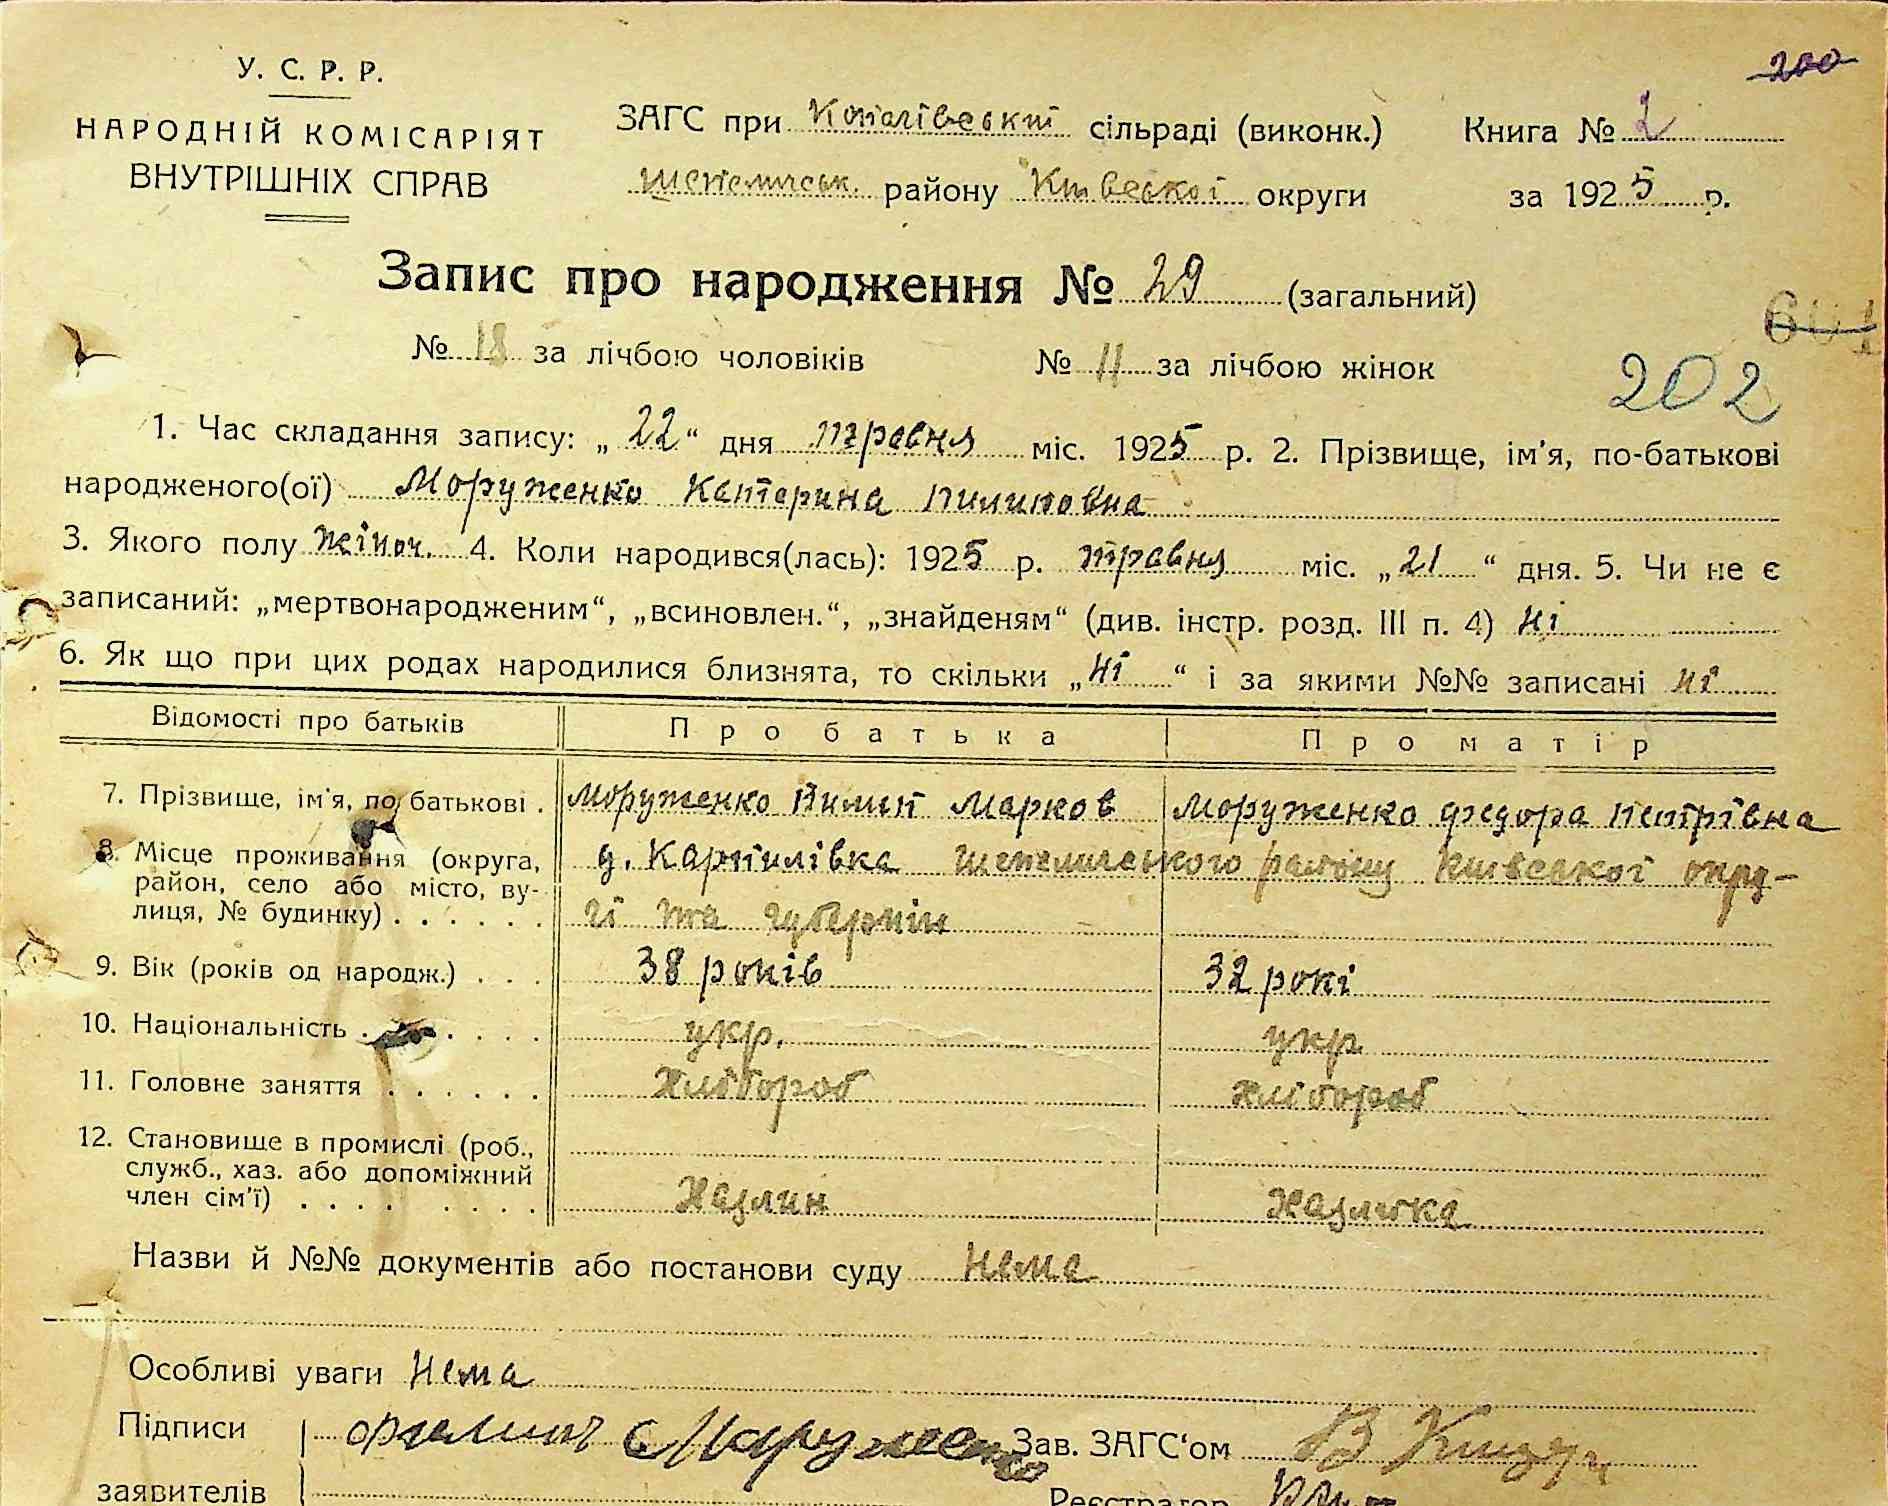 200
У. С. Р. Р.
НАРОДНІЙ КОМІСАРІЯТ
ВНУТРІШНІХ СПРАВ
ЗАГС при Копачівський сільраді (виконк.) Книга № 2
Шепеличськ. району Київської округи за 1925 р.
Запис про народження № 29 (загальний)
601
№ 18 за лічбою чоловіків № 11 за лічбою жінок
202
1. Час складання запису: „22“ дня травня міс. 1925 р. 2. Прізвище, ім'я, по-батькові
народженого(ої) Моруженко Катерина Пилиповна
3. Якого полу жіноч. 4. Коли народився(лась): 1925 р. травня міс. „21“ дня. 5. Чи не є
записаний: „мертвонародженим“, „всиновлен.“, „знайденям“ (див. інстр. розд. III п. 4) ні
6. Як що при цих родах народилися близнята, то скільки „ні“ і за якими №№ записані ні
Відомості про батьків Про батька Про матір
7. Прізвище, ім'я, по батькові . Моруженко Пилип Марков Моруженко Федора Петрівна
8. Місце проживання (округа, район, село або місто, вулиця, № будинку) . . . . . . д. Карпилівка Шепеличського району Київської окру-
ги та губернії
9. Вік (років од народж.) . . . 38 років 32 рокі
10. Національність . . . . . . укр. укр
11. Головне заняття . . . . . . хлібороб хлібороб
12. Становище в промислі (роб.,
служб., хаз. або допоміжний
член сім'ї) . . . . . . . . Хазяин Хазяйка
Назви й №№ документів або постанови суду Нема
Особливі уваги Нема
Підписи Моруженко Зав. ЗАГС'ом
заявителів Реєстратор